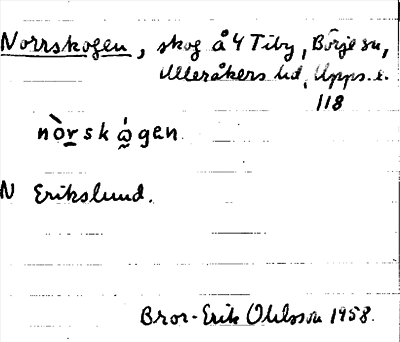 Norrskogen, skog å 4 Tiby, Börje sn,
Ulleråkers hd, Upps. l.
118
nòr̲skó̰gen
N Erikslund.
Bror-Erik Ohlsson 1958.